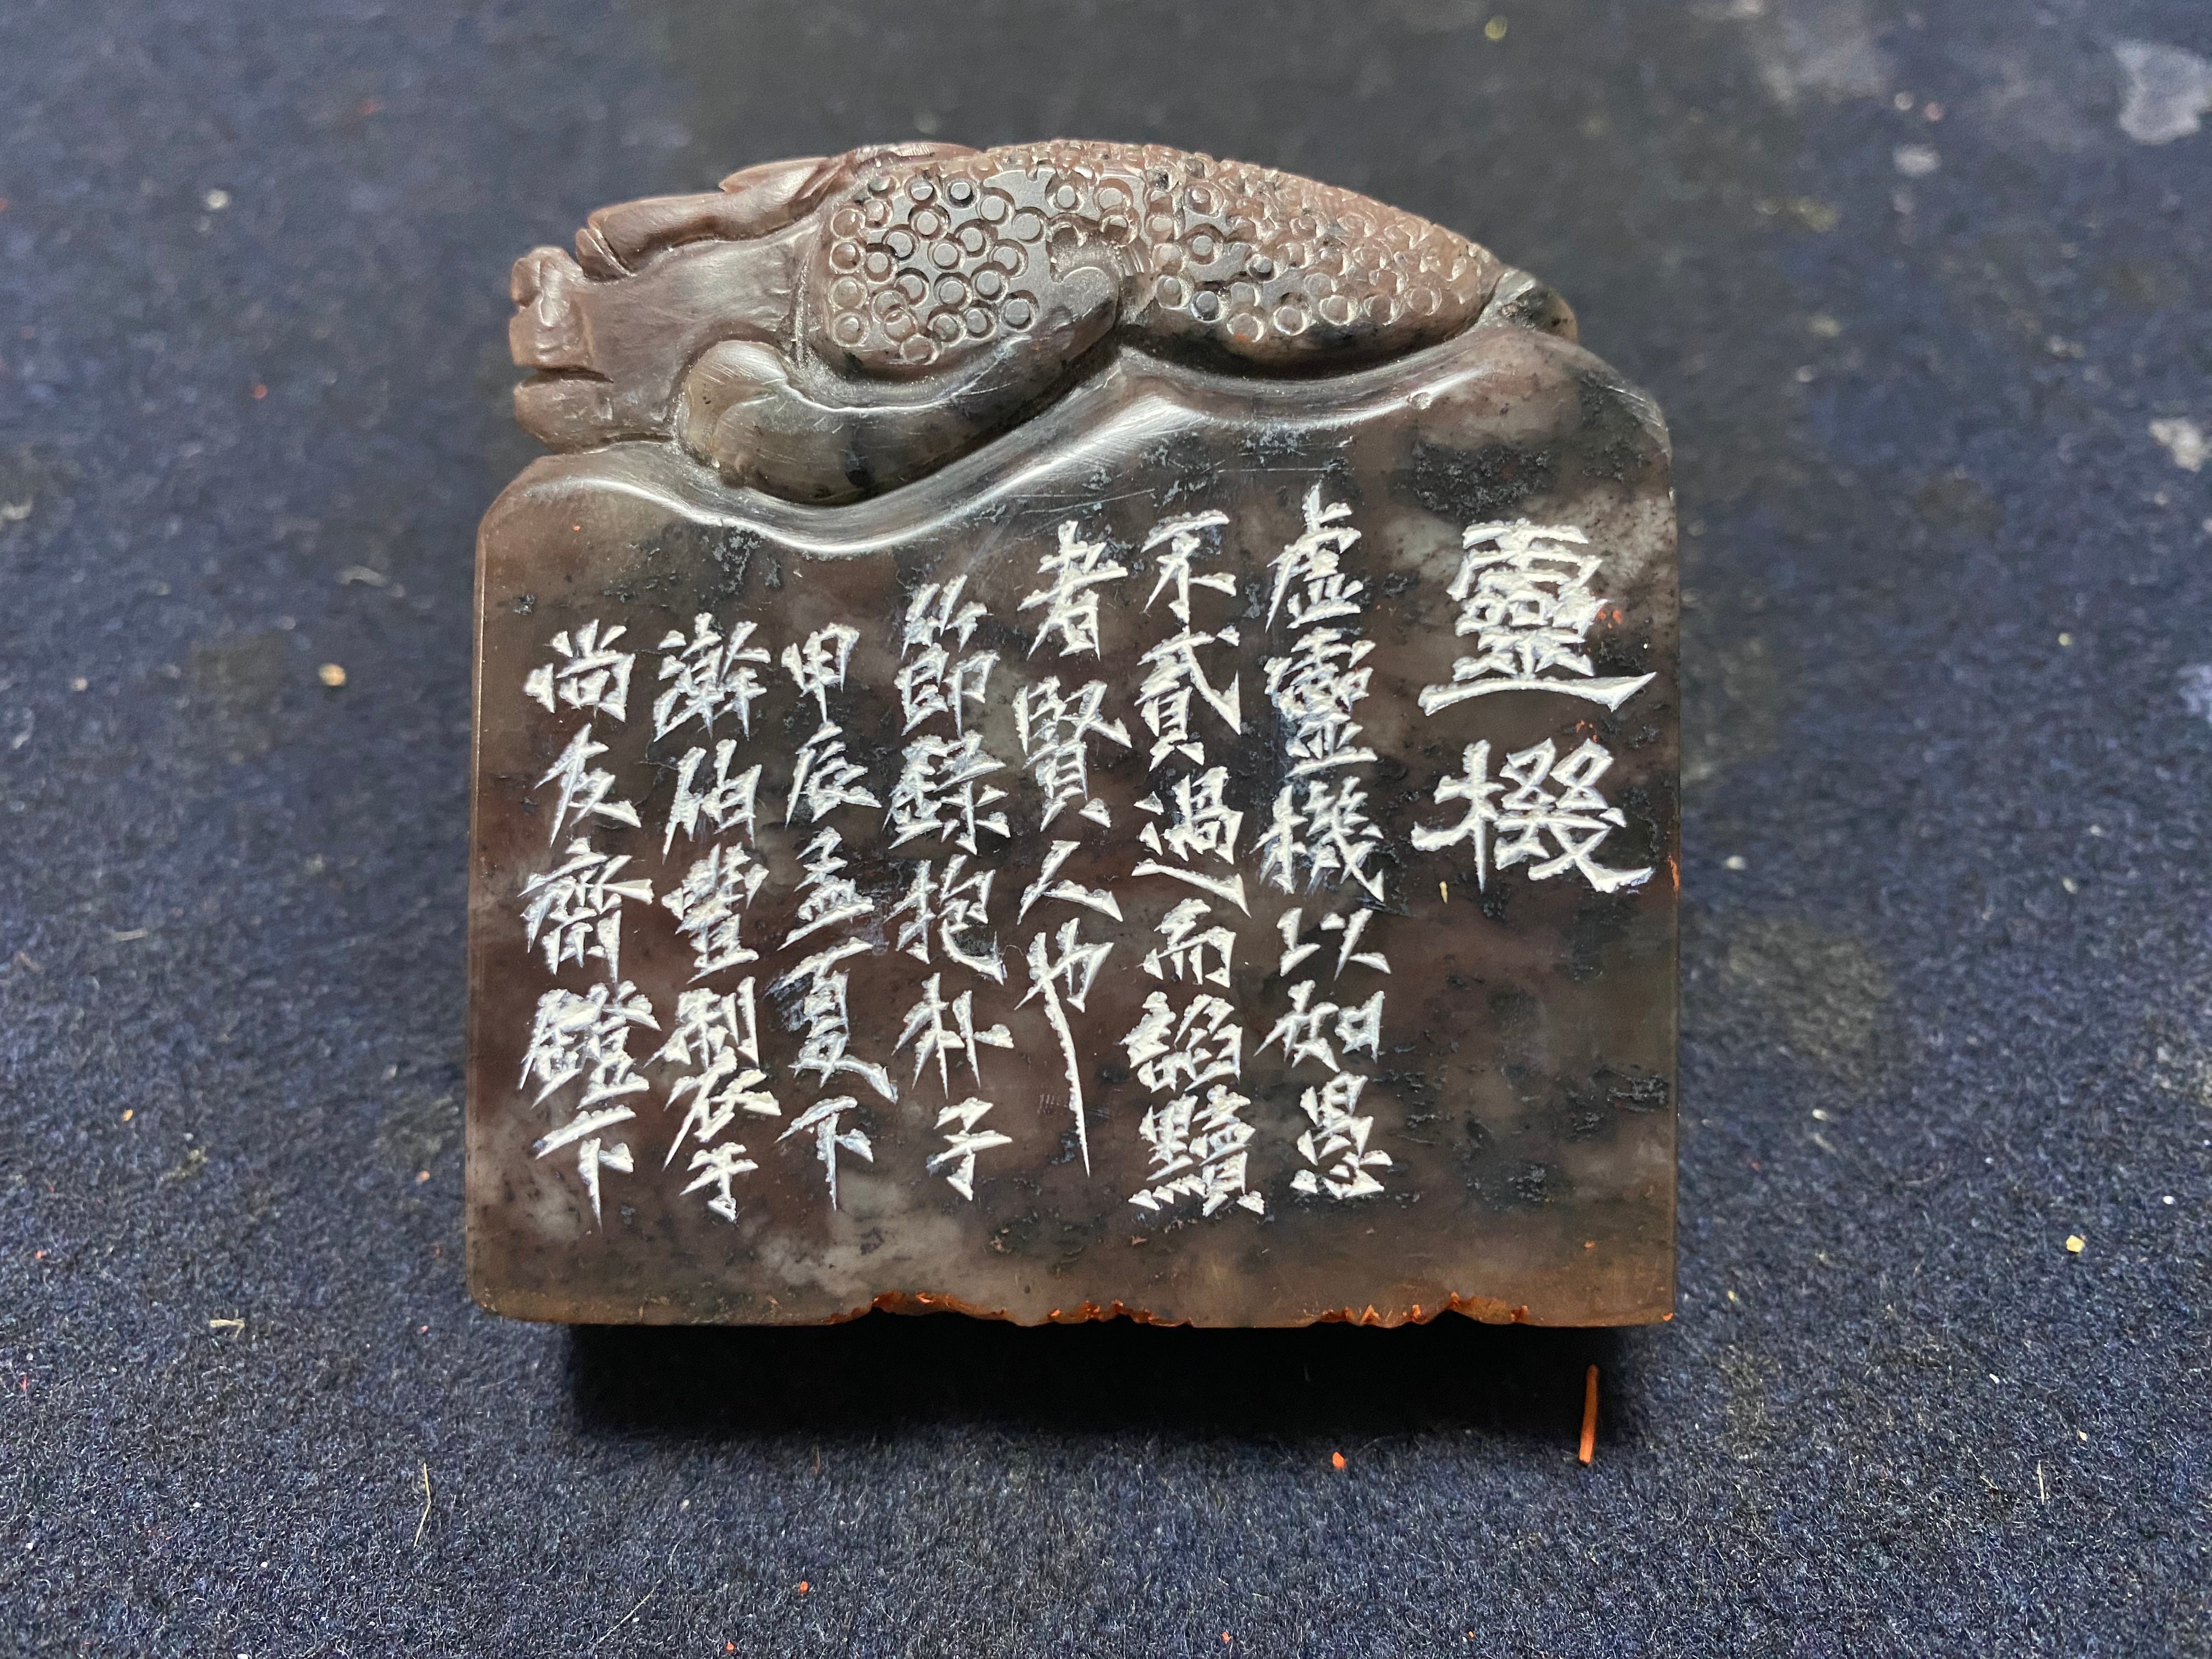 靈機
虛靈機以如愚
不貳過而諂黷
者賢人也
節錄抱朴子
甲辰孟夏下
澣豐製于
尚友齋鐙下